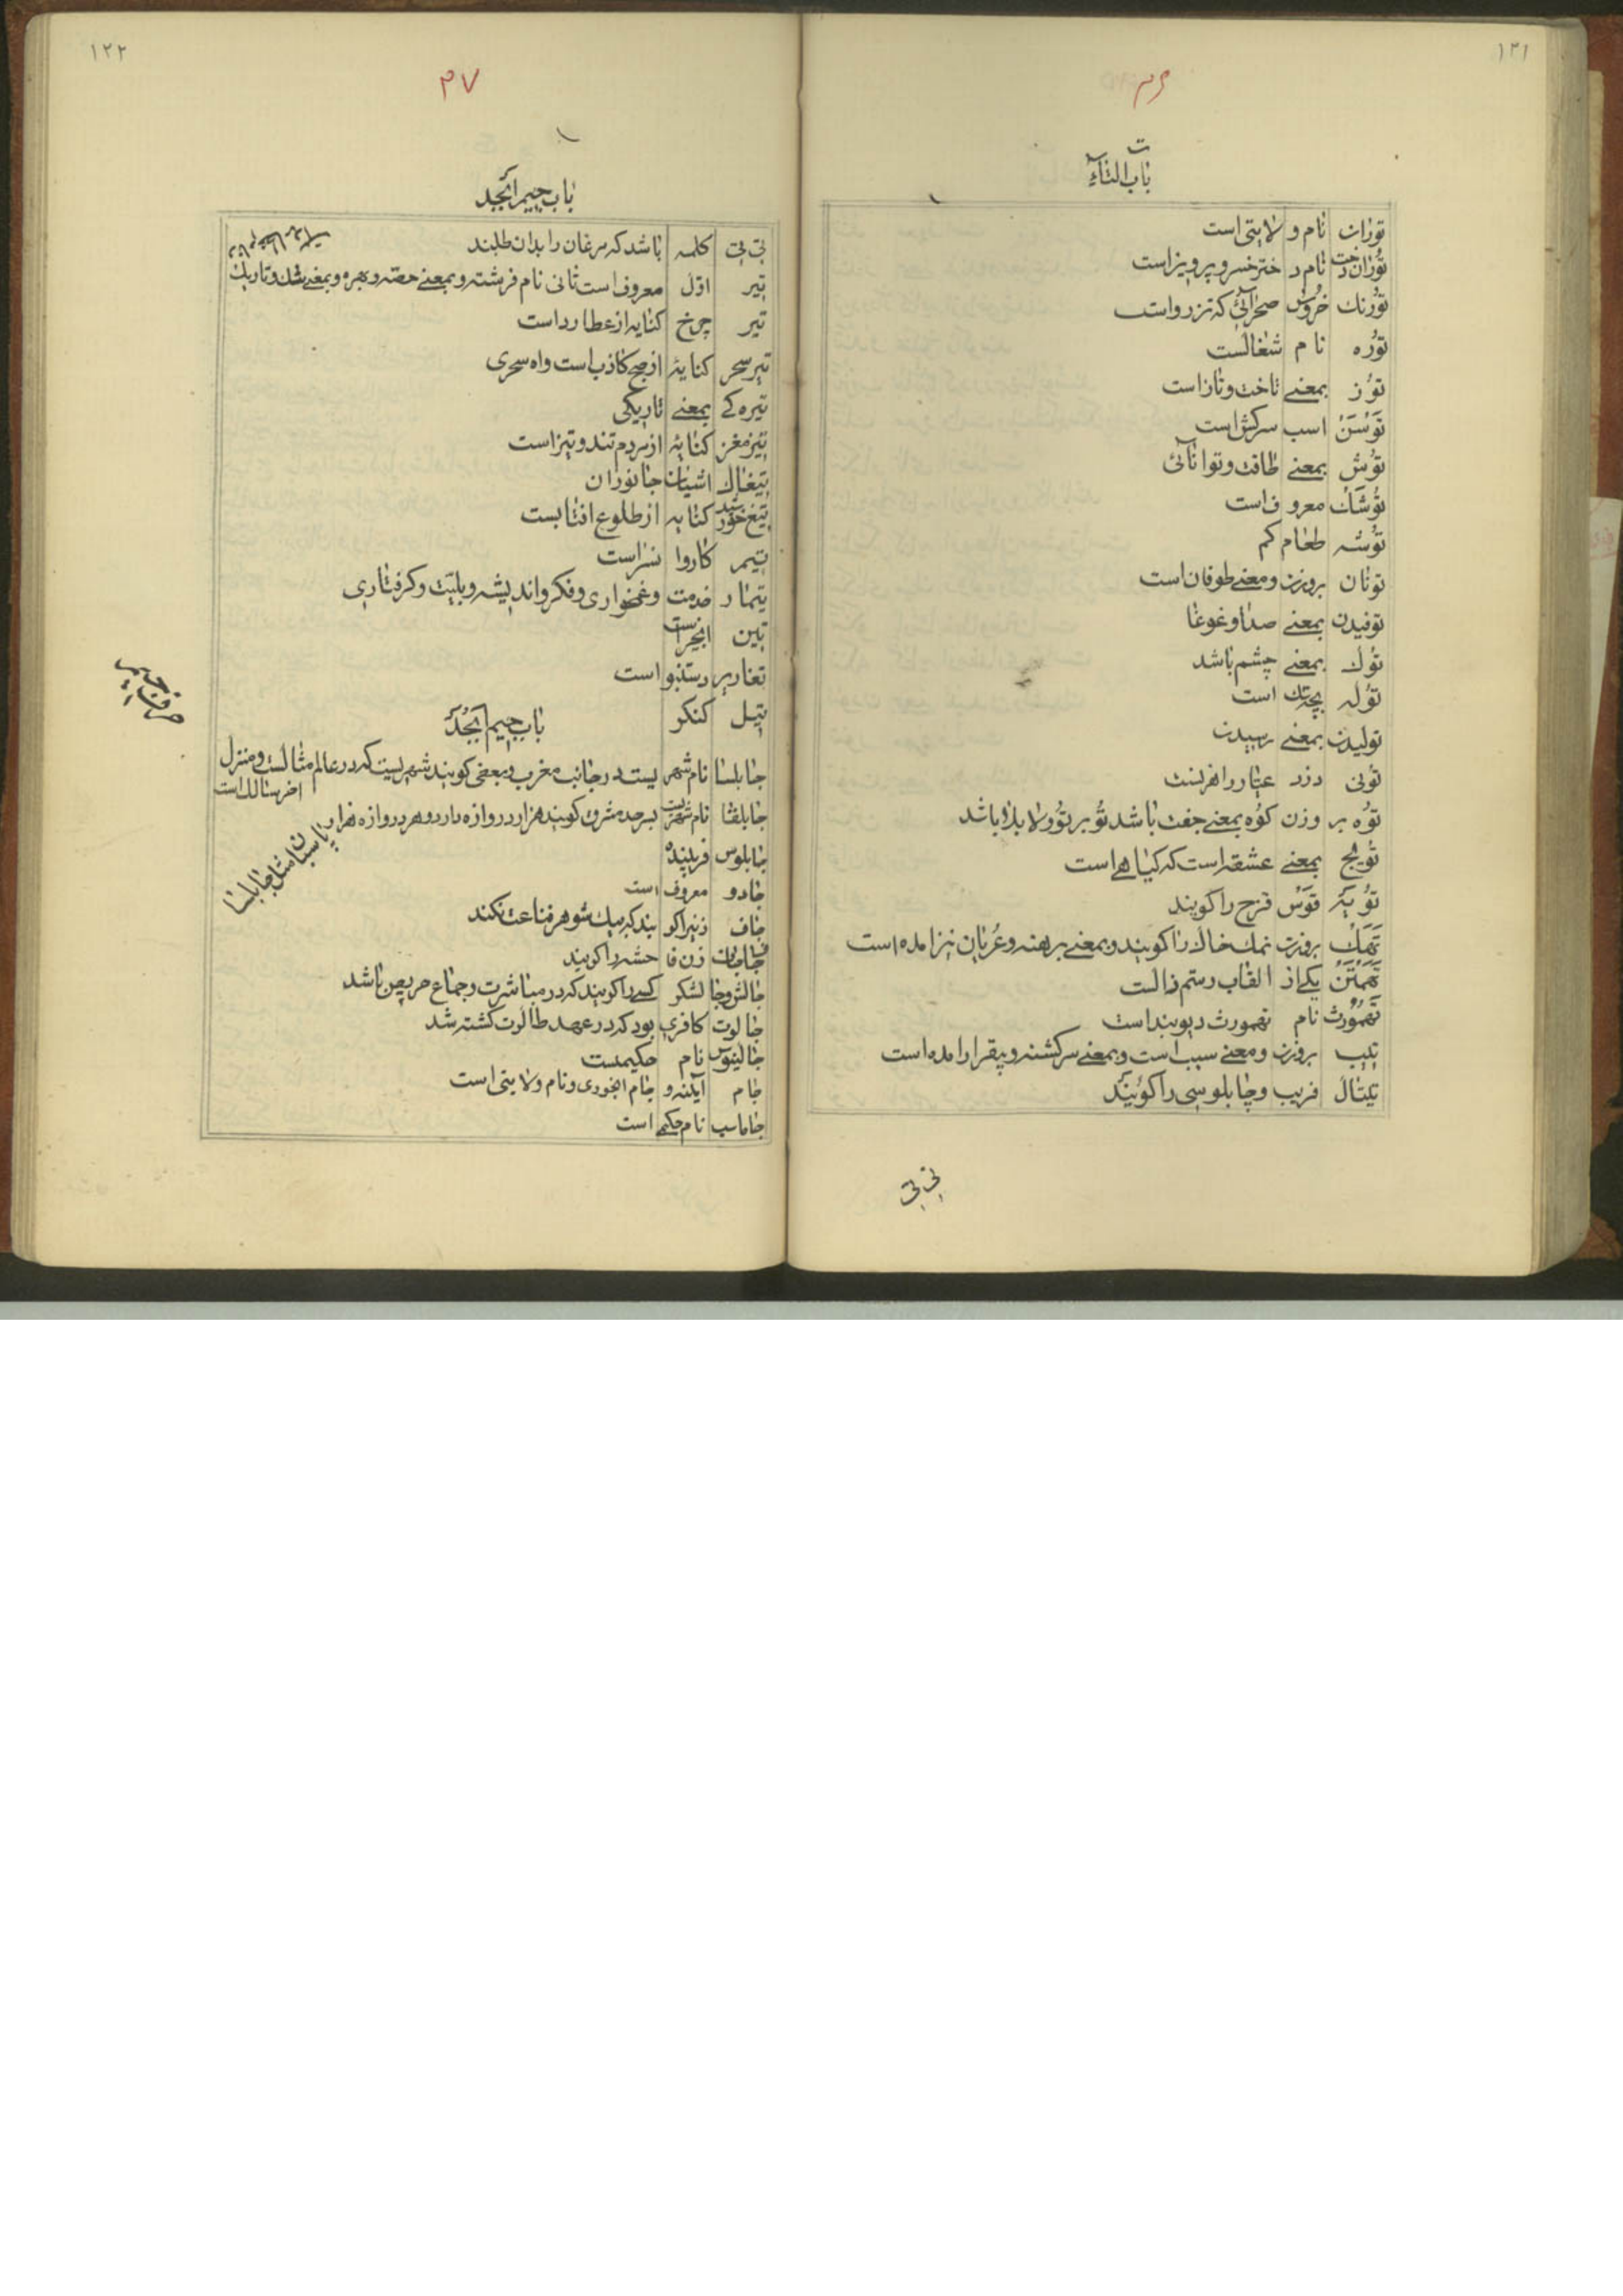 ۱۲۱
۳۶
ت
باب التاء
توران نام ولایتی است
توران دخت نام دختر خسرو پرویز است
تورنك خروس صحرائی که تزرو است
توره نام شغالست
توز بمعنے تاخت و تاز است
توسن اسب سرکش است
توش بمعنے طاقت و توانائی
توشك معروف است
توشه طعام کم
توفان بروزن و معنے طوفان است
توفیدن بمعنے صدا و غوغا
توك بمعنے چشم باشد
توله بچه سك است
تولیدن بمعنے رمیدن
تونی دزد عیار
توه بر وزن کوه بمعنے جفت باشد تو بر تو ولا بدلا باشد
تویج بمعنے عشقه است که کیاهے است
توبیه قوس قزح را کویند
تهك بروزن نمك خاك را کویند و بمعنے برهنه و عریان نیز امده است
تهمتن یکے از القاب رستم زالست
تهمورث نام تهمورث دیوبند است
تیب بروزن و معنے سیب است و بمعنے سرکشته و بیقرار امده است
تیتال فریب و چاپلوسی را کویند
تی تی
۱۲۲
۳۷
باب جیم ابجد
تی تی کلمه باشد که مرغان را بدان طلبند
تیر اول معروف است ثانی نام فرشته و بمعنے حصه و بهره و بمعنے شك و تاریك
تیر چرخ کنایه از عطارد است
تیر سحر کنایه از صبح کاذب است و اه سحری
تیره کے بمعنے تاریکی
تیز مغز کنایه از مردم تند و تیز است
تیغال اشیان جانوران
تیغ خورشید کنایه از طلوع افتابست
تیم کاروانسراست
تیمار خدمت و غمخواری و فکر و اندیشه و بلیت و کرفتاری
تین انجیر است
تغاریر دستنبو است
تیل کنکر
باب جیم ابجد
حرف جیم
جابلسا نام شهریست در جانب مغرب و بعضی کویند شهریست که در عالم مثالست و منزل
اخر سالك است
جابلقا نام شهریست بسرحد مشرق کویند هزار دروازه دارد و هر دروازه هزار
پاسبان مثل جابلسا
چاپلوس فریبنده
جادو معروف است
جاف زنیرا کویند که بیك شوهر قناعت نکند
جاف جاف زن فاحشه را کویند
جالش و جالشکر کسے را کویند که در مباشرت و جماع حریص باشد
جالوت کافری بود که در عهد طالوت کشته شد
جالینوس نام حکیمست
جام آیینه و جام ابخوری و نام ولایتی است
جاماسب نام حکیے است